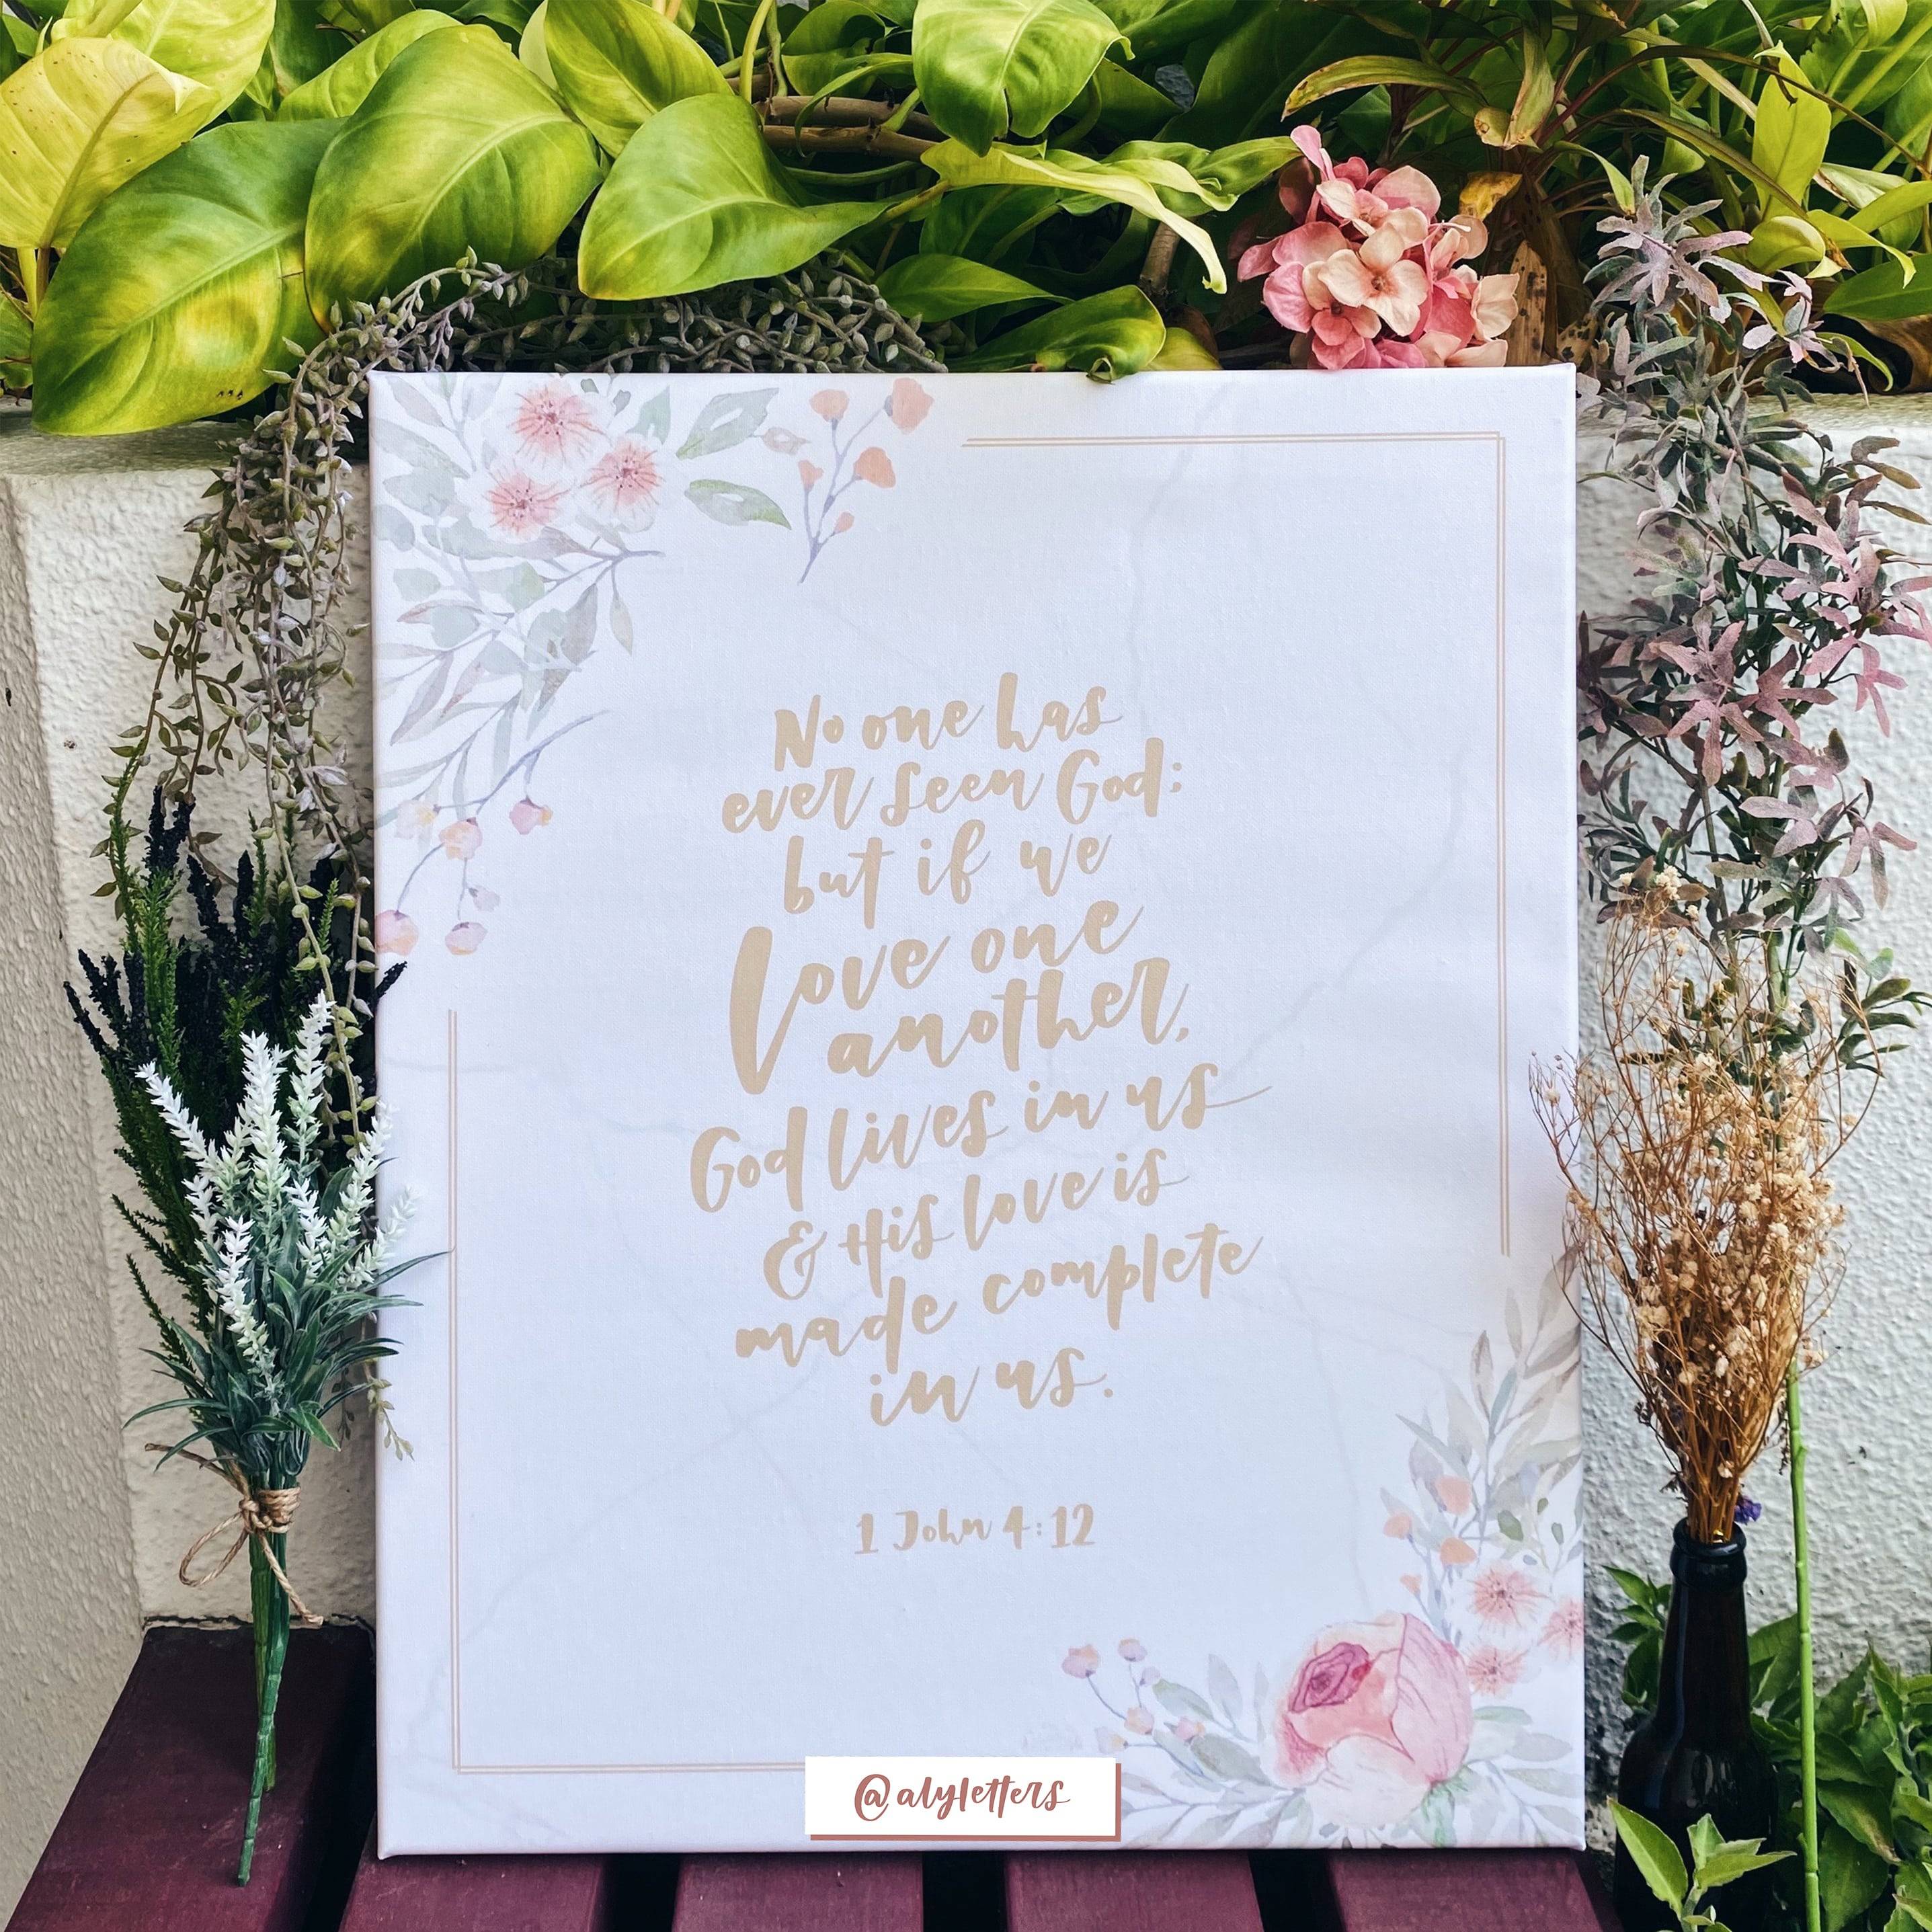 No one has
ever seen God;
but if we
love one
another,
God lives in us
& His love is
made complete
in us.
1 John 4:12
@alyletters